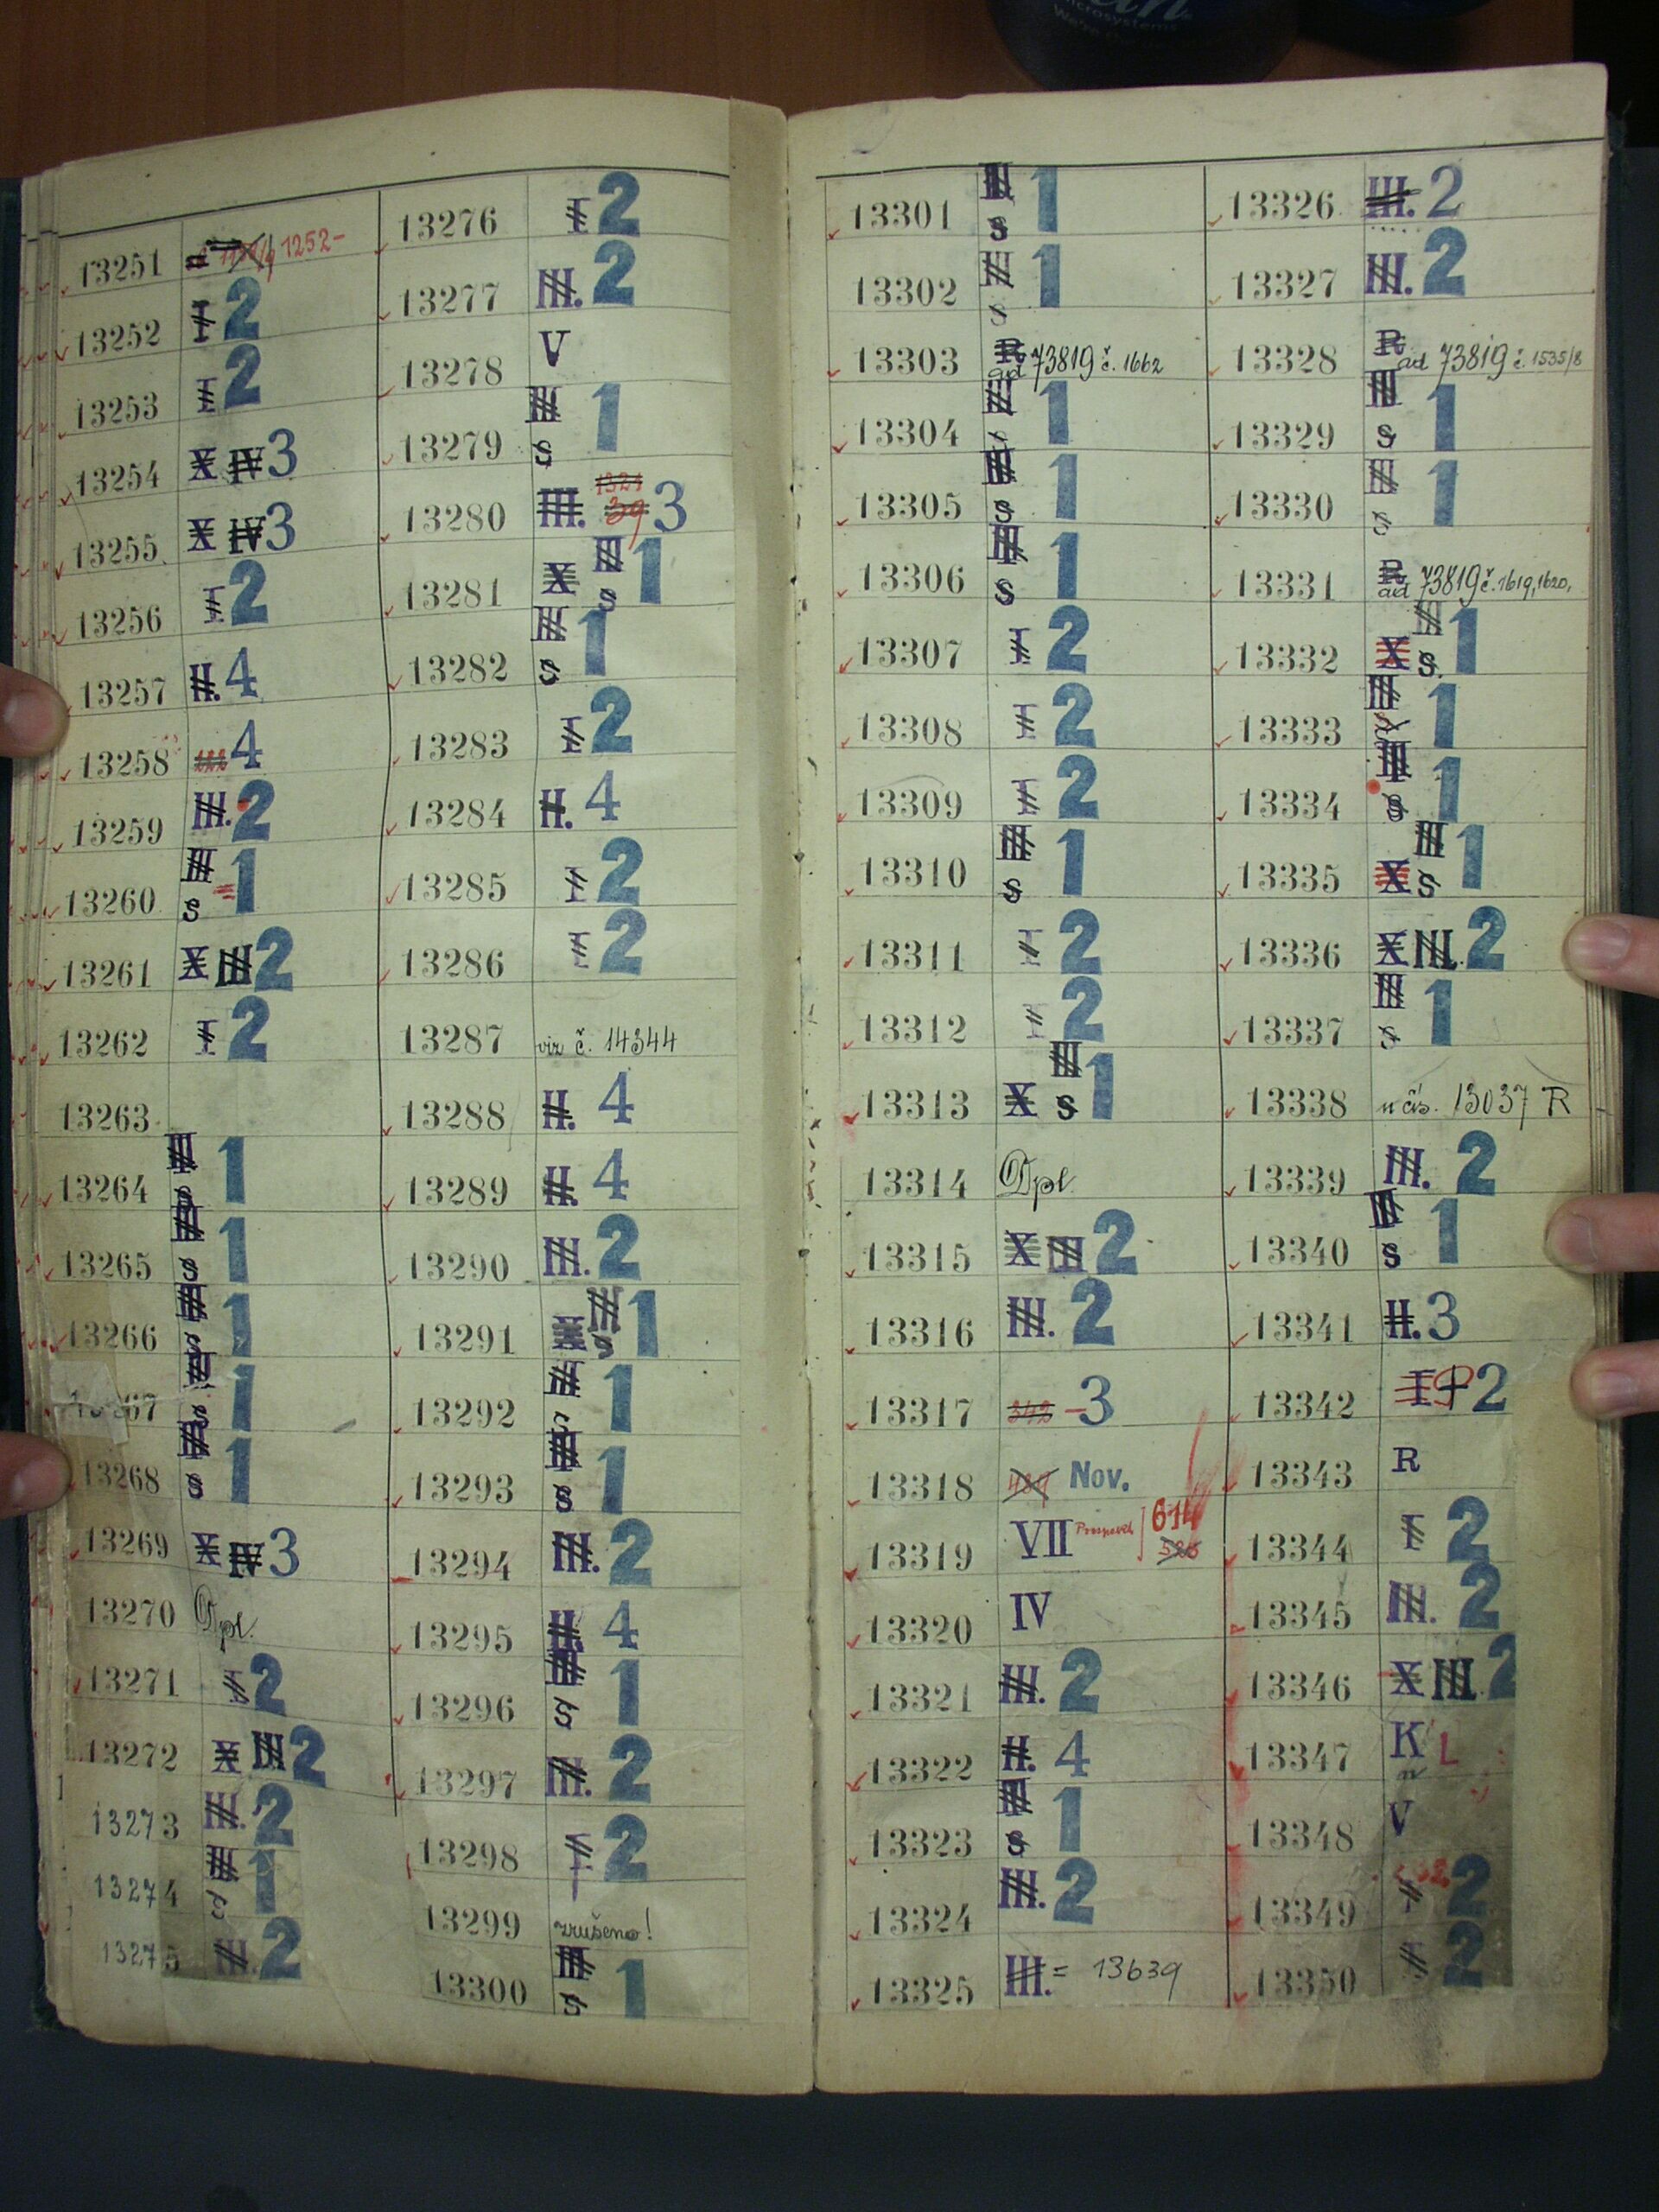 Microsystems
13251 1252-
13252 I 2
13253 I 2
13254 X IV 3
13255 X IV 3
13256 I 2
13257 II. 4
13258 222 4
13259 III. 2
13260 III s 1
13261 X III 2
13262 I 2
13263
13264 III s 1
13265 III s 1
13266 III s 1
67 III s 1
13268 III s 1
13269 X IV 3
13270 Dpl.
13271 I 2
13272 X III 2
13273 III. 2
13274 III s 1
13275 III. 2
13276 I 2
13277 III. 2
13278 V
13279 III s 1
13280 III. 1321 39 3
13281 X III s 1
13282 III s 1
13283 I 2
13284 II. 4
13285 I 2
13286 I 2
13287 viz č. 14344
13288 II. 4
13289 II. 4
13290 III. 2
13291 X III s 1
13292 III s 1
13293 III s 1
13294 III. 2
13295 II. 4
13296 III s 1
13297 III. 2
13298 I 2
13299 zrušeno!
13300 III s 1
13301 III s 1
13302 III s 1
13303 R ad 73819 č. 1662
13304 III s 1
13305 III s 1
13306 III s 1
13307 I 2
13308 I 2
13309 I 2
13310 III s 1
13311 I 2
13312 I 2
13313 X III s 1
13314 Dpl.
13315 X III 2
13316 III. 2
13317 342 - 3
13318 Nov.
13319 VII 614
13320 IV
13321 III. 2
13322 II. 4
13323 III s 1
13324 III. 2
13325 III. = 13639
13326 III. 2
13327 III. 2
13328 R ad 73819 č. 1535/8
13329 III s 1
13330 III s 1
13331 R ad 73819 č. 1619, 1620,
13332 X III s. 1
13333 III 1
13334 III s 1
13335 X III s 1
13336 X III. 2
13337 III s 1
13338 u čís. 13037 R
13339 III. 2
13340 III s 1
13341 II. 3
13342 I 2
13343 R
13344 I 2
13345 III. 2
13346 X III. 2
13347 K L
13348 V
13349 I 2
13350 I 2